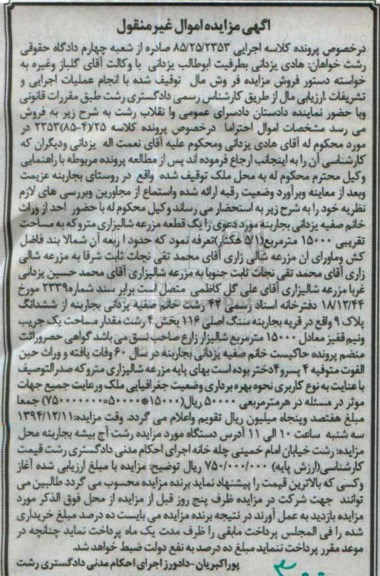 آگهی مزایده اموال غیرمنقول
درخصوص پرونده کلاسه اجرایی ۸۵/۲۵/۲۳۵۳ صادره از شعبه چهارم دادگاه حقوقی
رشت خواهان: هادی یزدانی بطرفیت ابوطالب یزدانی با وکالت آقای گلباز وغیره به
خواسته دستور فروش مزایده فروش مال توقیف شده با انجام عملیات اجرایی و
تشریفات ارزیابی مال از طریق کارشناس رسمی دادگستری رشت طبق مقررات قانونی
وبا حضور نماینده دادستان دادسرای عمومی وا نقلاب رشت به شرح زیر به فروش
می رسد مشخصات اموال احتراما درخصوص پرونده کلاسه ۲۳۵۳(۸۵-۴)۲۵
مورد محکوم له آقای هادی یزدانی ومحکوم علیه آقای نعمت اله یزدانی ودیگران که
کارشناسی آن را به اینجانب ارجاع فرموده اند پس از مطالعه پرونده مربوطه با راهنمایی
وکیل محترم محکوم له به محل ملک توقیف شده واقع در روستای بجاربنه عزیمت
وبعد از معاینه وبرآورد وضعیت رقبه ارائه شده واستماع از مجاورین وبررسی های لازم
نظریه خود را به شرح زیر به استحضار می رساند وکیل محکوم له با حضور احد از وراث
خانم صفیه یزدانی بجاربنه مورددعوی را یک قطعه مزرعه شالیزاری متروکه به مساحت
تقریبی ۱۵۰۰۰ مترمربع(۱/۵ هکتار)تعرفه نمود که حدود اربعه آن شمالا بند فاضل
کش وماورای آن مزرعه شالی زاری آقای محمد تقی نجات ثابت شرقا به مزرعه شالی
زاری آقای محمد تقی نجات ثابت جنوبا به مزرعه شالیزاری آقای محمد حسین یزدانی
غربا مزرعه شالیزاری آقای علی گل کاظمی متصل است برابر سند شماره۲۳۳۹ مورخ
۱۸/۱۲/۴۴ دفترخانه اسناد رسمی ۴۳ رشت خانم صفیه یزدانی بجاربنه از ششدانگ
پلاک ۹ واقع در قریه بجاربنه سنگ اصلی ۱۱۶ بخش ۴ رشت مقدار مساحت یک جریب
ونیم قفیز معادل ۱۵۰۰۰ مترمربع شالیزار زارع صاحب نسق می باشد گواهی حصروراثت
منضم پرونده حاکیست خانم صفیه یزدانی بجاربنه در سال ۶۰ وفات یافته و وراث حین
الفوت متوفیه ۴ پسرو۴دختر بوده است بهای پایه مزرعه شالیزاری متروکه صدرالتوصیف
با عنایت به نوع کاربری نحوه بهره برداری وضعیت جغرافیایی ملک ورعایت جمیع جهات
موثر در مسئله در هرمترمربعی ۵۰۰۰۰ ریال(۱۵۰۰۰*۵۰۰۰۰=۷۵۰۰۰۰۰۰۰) جمعا
مبلغ هفتصد وپنجاه میلیون ریال تقویم واعلام می گردد. وقت مزایده:۱۳۹۴/۱۲/۱۱
سه شنبه ساعت ۱۰ الی ۱۱ آدرس دستگاه مورد مزایده رشت آج بیشه بجاربنه محل
مزایده: رشت خیابان امام خمینی چله خانه اجرای احکام مدنی دادگستری رشت قیمت
کارشناسی(ارزش پایه) ۷۵۰/۰۰۰/۰۰۰ ریال توضیح: مزایده با مبلغ ارزیابی شده آغاز
وکسی که بالاترین قیمت را پیشنهاد نماید برنده مزایده محسوب می گردد طالبین می
توانند جهت شرکت در مزایده ظرف پنج روز قبل از مزایده از محل فوق الذکر مورد
مزایده بازدید به عمل آورند در نتیجه برنده مزایده می بایست ده درصد مبلغ خریداری
شده را فی المجلس پرداخت مابقی را ظرف مدت یک ماه پرداخت نماید چنانچه در
موعد مقرر پرداخت ننماید مبلغ ده درصد به نفع دولت ضبط خواهد شد.
پوراکبریان-دادورز اجرای احکام مدنی دادگستری رشت